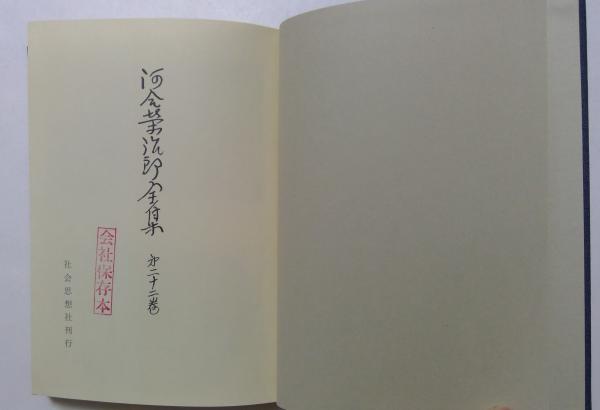 河合栄治郎全集
第二十二巻
会社保存本
社会思想社刊行